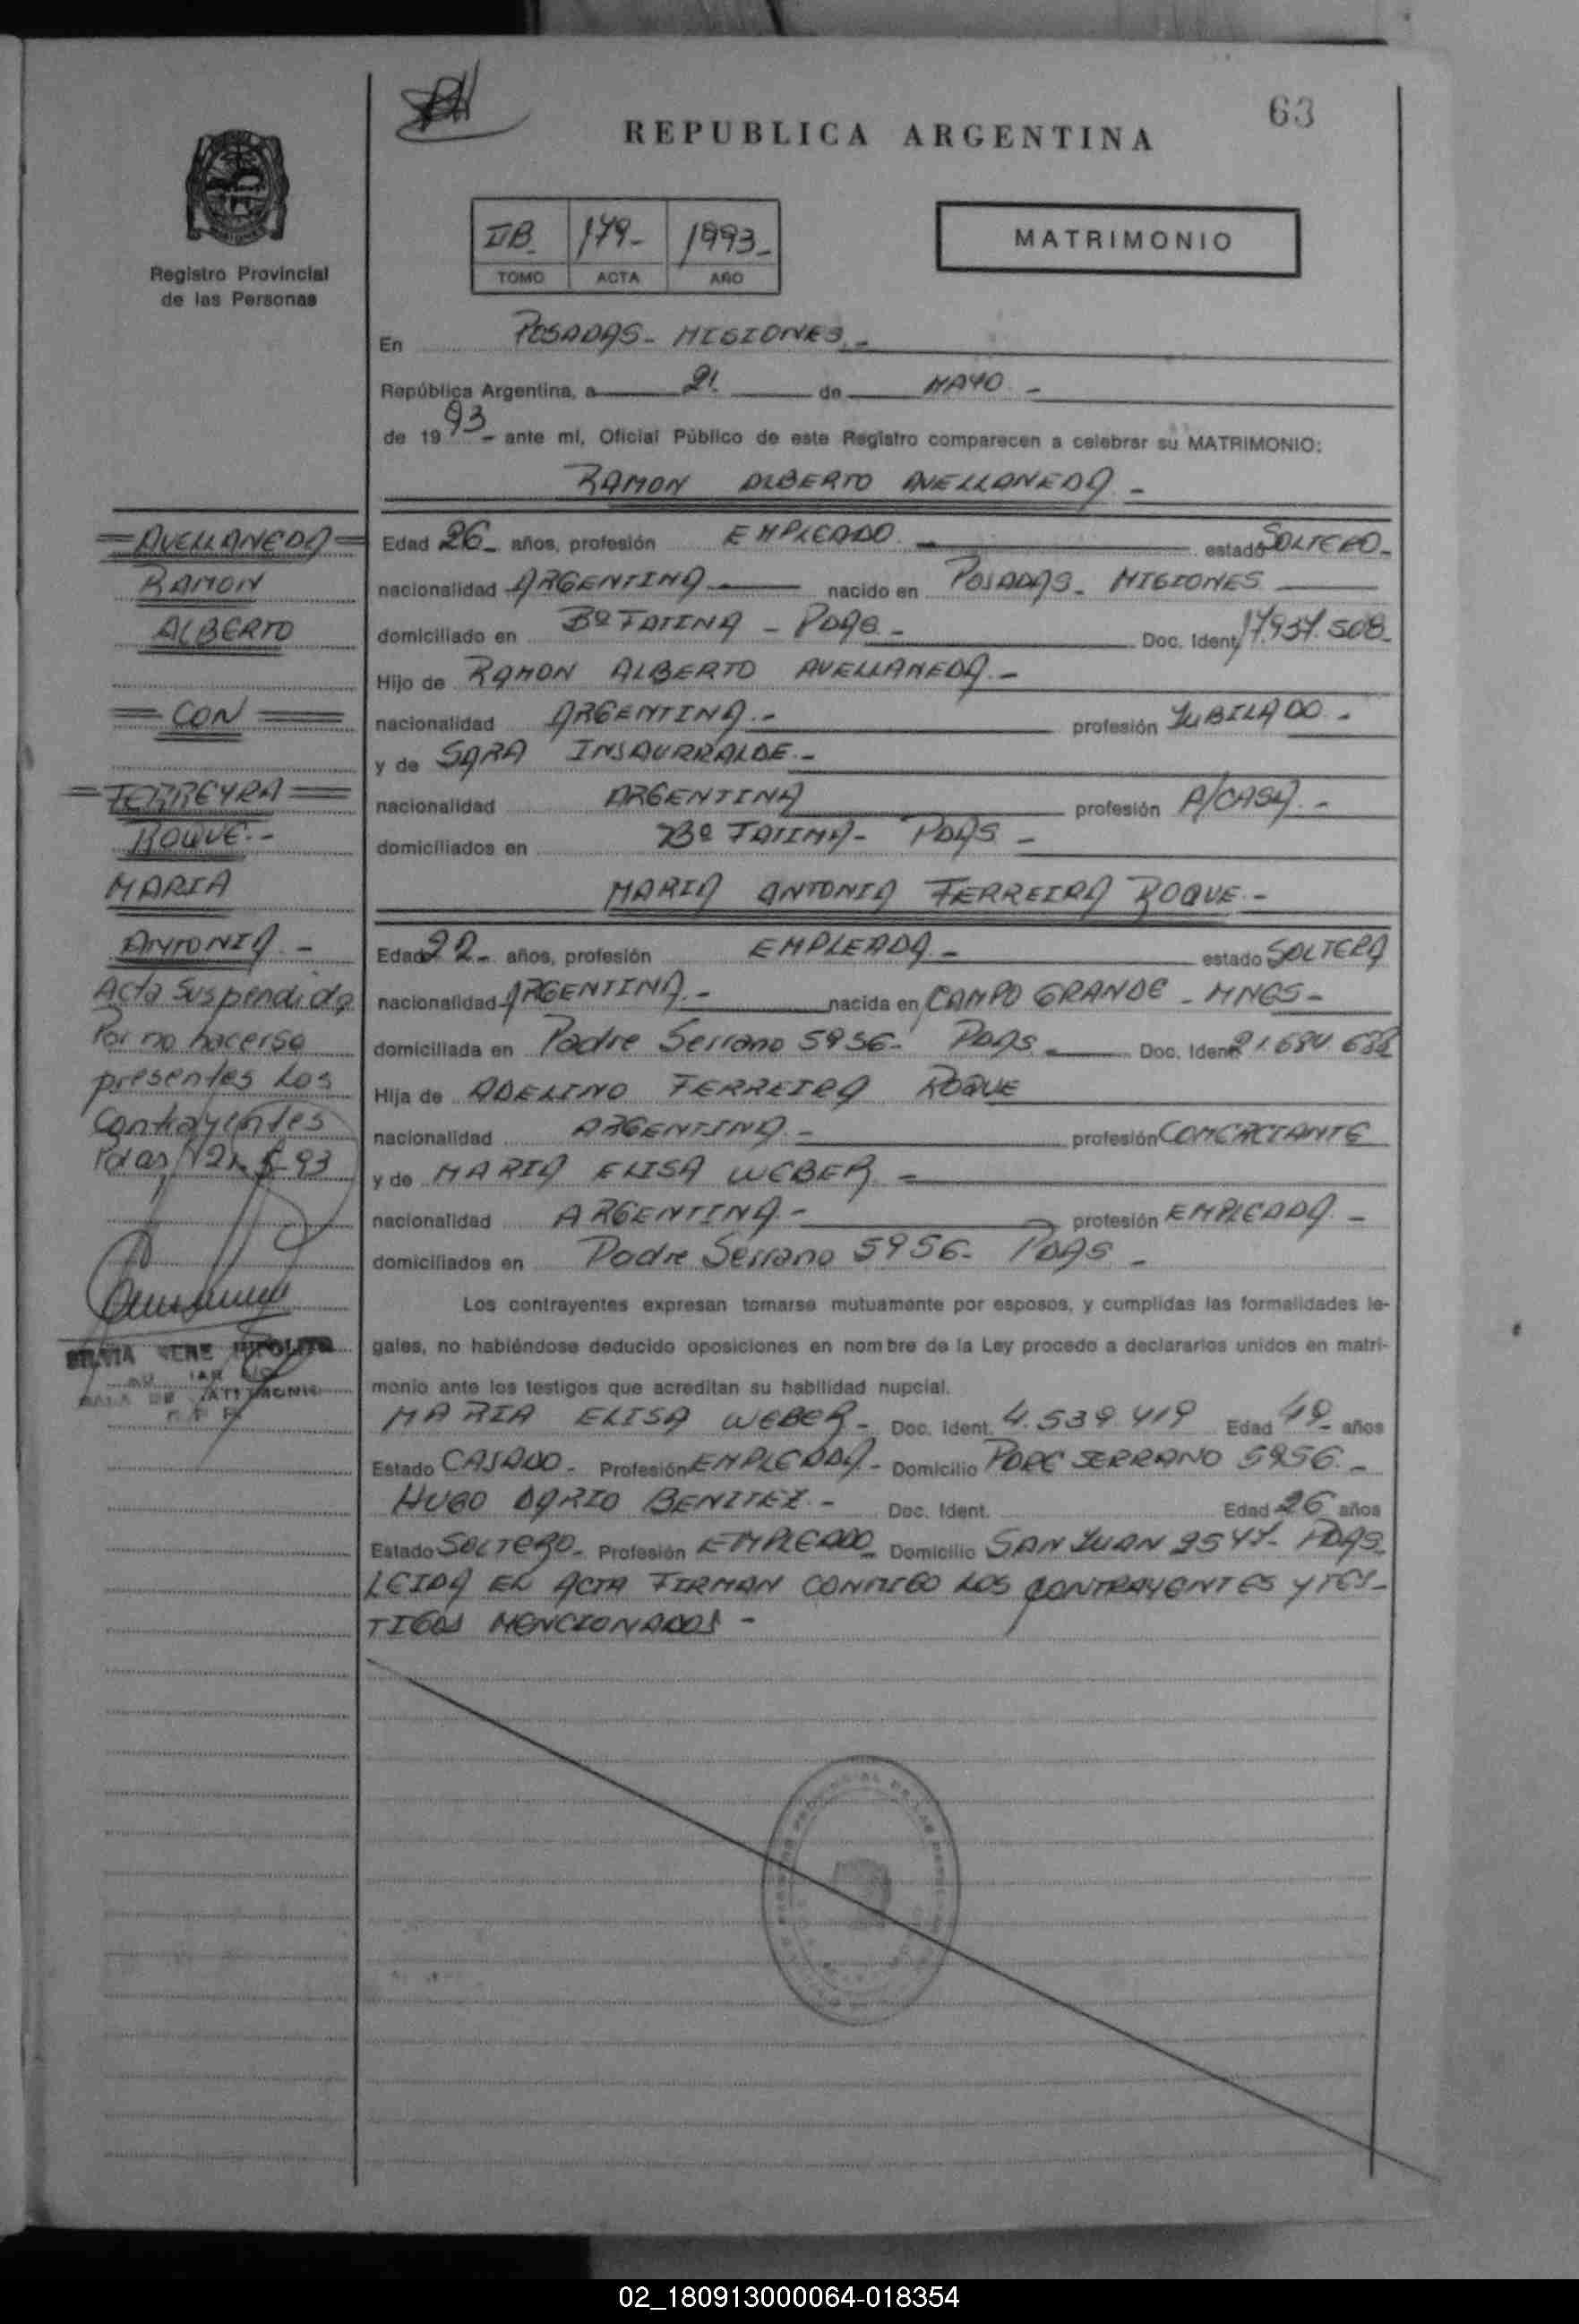 63
REPUBLICA ARGENTINA
IIB 179- 1993-
TOMO ACTA AÑO
MATRIMONIO
Registro Provincial
de las Personas
En POSADAS - MISIONES. -
República Argentina, a 21 de MAYO -
de 1993 - ante mi, Oficial Público de este Registro comparecen a celebrar su MATRIMONIO:
RAMON ALBERTO AVELLANEDA -
Edad 26 - años, profesión EMPLEADO. - estado SOLTERO -
nacionalidad ARGENTINA - nacido en POSADAS - MISIONES
domiciliado en Bº FATIMA - PDAS - Doc. Ident. 17.937.508 -
Hijo de RAMON ALBERTO AVELLANEDA. -
nacionalidad ARGENTINA. - profesión JUBILADO -
y de SARA INSAURRALDE. -
nacionalidad ARGENTINA profesión A/CASA. -
domiciliados en Bº FATIMA - PDAS -
MARIA ANTONIA FERREIRA ROQUE. -
Edad 22 - años, profesión EMPLEADA. - estado SOLTERA
nacionalidad ARGENTINA. - nacida en CAMPO GRANDE - MNES -
domiciliada en Padre Serrano 5956 - PDAS Doc. Ident.
Hija de ADELINO FERREIRA ROQUE
nacionalidad ARGENTINA - profesión COMERCIANTE
y de MARIA ELISA WEBER -
nacionalidad ARGENTINA - profesión EMPLEADA. -
domiciliados en Padre Serrano 5956 - PDAS -
Los contrayentes expresan tomarse mutuamente por esposos, y cumplidas las formalidades le-
gales, no habiéndose deducido oposiciones en nombre de la Ley procedo a declararlos unidos en matri-
monio ante los testigos que acreditan su habilidad nupcial.
MARIA ELISA WEBER - Doc. Ident. 4.539.419 Edad 49 - años
Estado CASADO - Profesión EMPLEADA - Domicilio PDRE SERRANO 5956. -
HUGO DARIO BENITEZ. - Doc. Ident. Edad 26 años
Estado SOLTERO - Profesión EMPLEADO Domicilio SAN JUAN 2547 - PDAS
LEIDA EL ACTA FIRMAN CONMIGO LOS CONTRAYENTES Y TES-
TIGOS MENCIONADOS -
AVELLANEDA
RAMON
ALBERTO
CON
FERREYRA
ROQUE. -
MARIA
ANTONIA. -
Acta Suspendida
Por no hacerse
presentes Los
Contrayentes
Pdas, 21-5-93
02_180913000064-018354